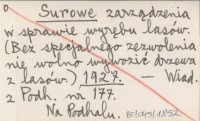 Surowe zarządzenia
w sprawie wyrębu lasów.
(Bez specjalnego zezwolenia
nie wolno wywozić drzewa
z lasów.) 1927. — Wiad.
z Podh. nr 177.
Na Podhalu.